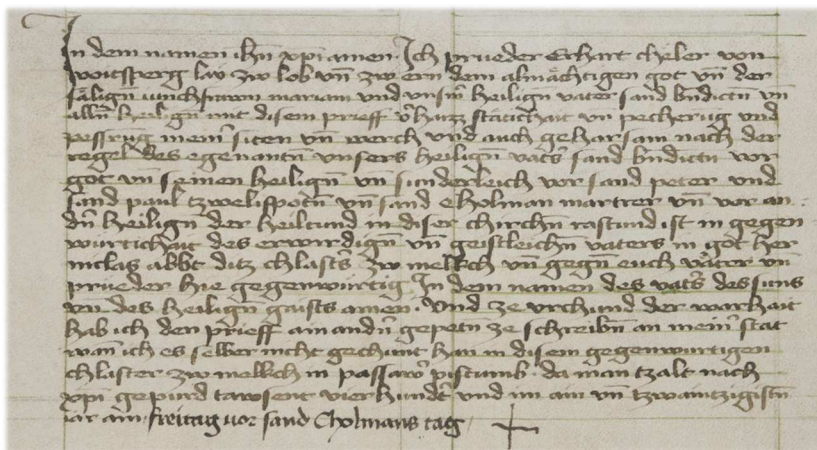 In dem namen ihū xpi amen · Ich prueder Erhart cheler von
woitsperg lay zw lob vn̄ zw ern dem almächtigen got vn̄ der
sälign̄ iunchfrawn mariam vnd vnsm̄ heilign vater sand bn̄dictn̄ vn̄
alln̄ heilign̄ mit disem prieff v̓haizz stätichait vn̄ pecherug vnd
pessrug mein̓ siten vn̄ werch vnd auch gehorsam nach der
regel des egenantn̄ vnsers heilign̄ vat̓s sand bn̄dictn̄ vor
got vn̄ seinen heilign̄ vn̄ sunderleich vor sand peter vnd
sand paul tzwelifpotn̄ vn̄ sand cholman martrer vn̄ vor an
dn̄ heilign̄ der heiltum in diser chirchn̄ rastund ist in gegen
würtichait des erwirdign̄ vn̄ geistleichn̄ vaters in got her
niclas abbt ditz chlast̓s zw melkch vn̄ gegn̄ euch väter vn̄
prueder hie gegenwürtig In dem namen des vat̓s des suns
vn̄ des heilign̄ gaists amen · Vnd ze vrchund der warhait
hab ich den prieff ain andn̄ gepetn̄ ze schreibn̄ an mein̓ stat
wan̄ ich es selber nicht gechunt han in disem gegenwurtigen
chlaster zw mellkch in passaw̓ pistumb · da man tzalt nach
xpi gepurd tawsent vierhundt̓ vnd im ain vn̄ tzwaintzigistn̄
iar am freitag vor sand Cholmans tag